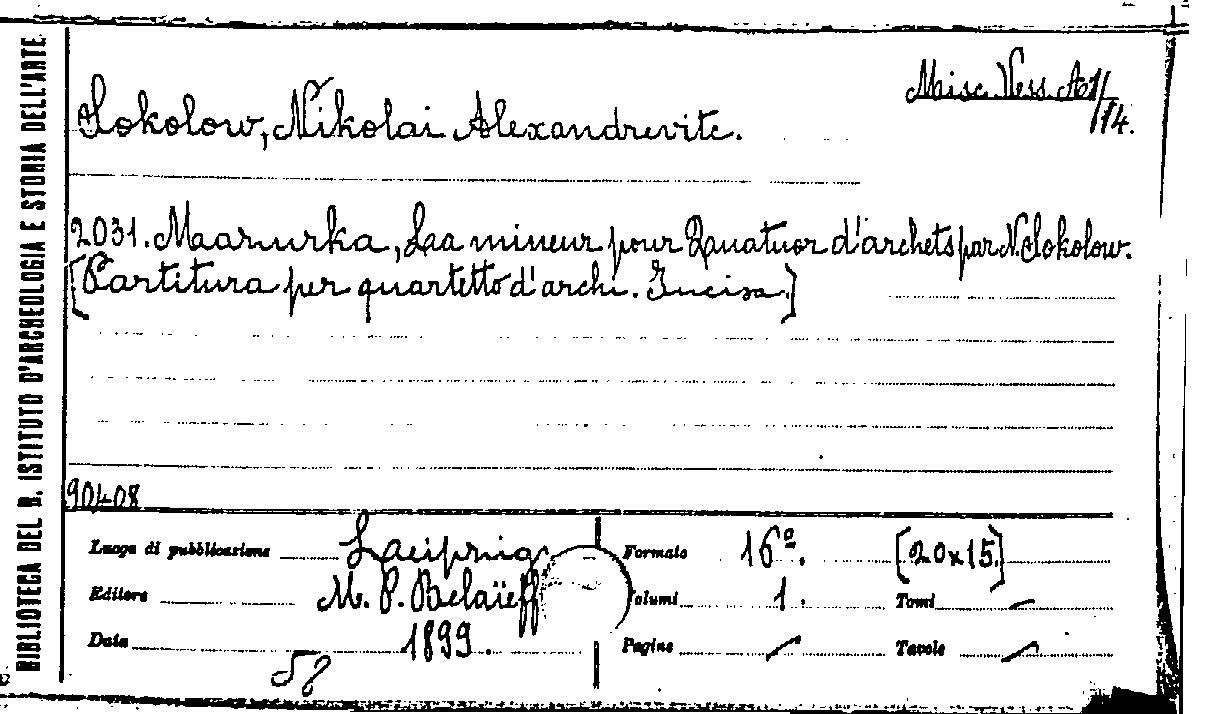 BIBLIOTECA DEL R. ISTITUTO D'ARCHEOLOGIA E STORIA DELL'ARTE
Misc. Vess. A1/14.
Sokolow, Nikolai Alexandrevite.
2031. Maazurka, Laa mineur pour Quatuor d'archets par N. Sokolow.
[Partitura per quartetto d'archi. Incisa.]
90408
Luogo di pubblicazione Laeipzig
Formato 16º. [20x15.]
Editore M. P. Belaïeff
Volumi 1. Tomi —
Data 1899.
Pagine — Tavole —
58